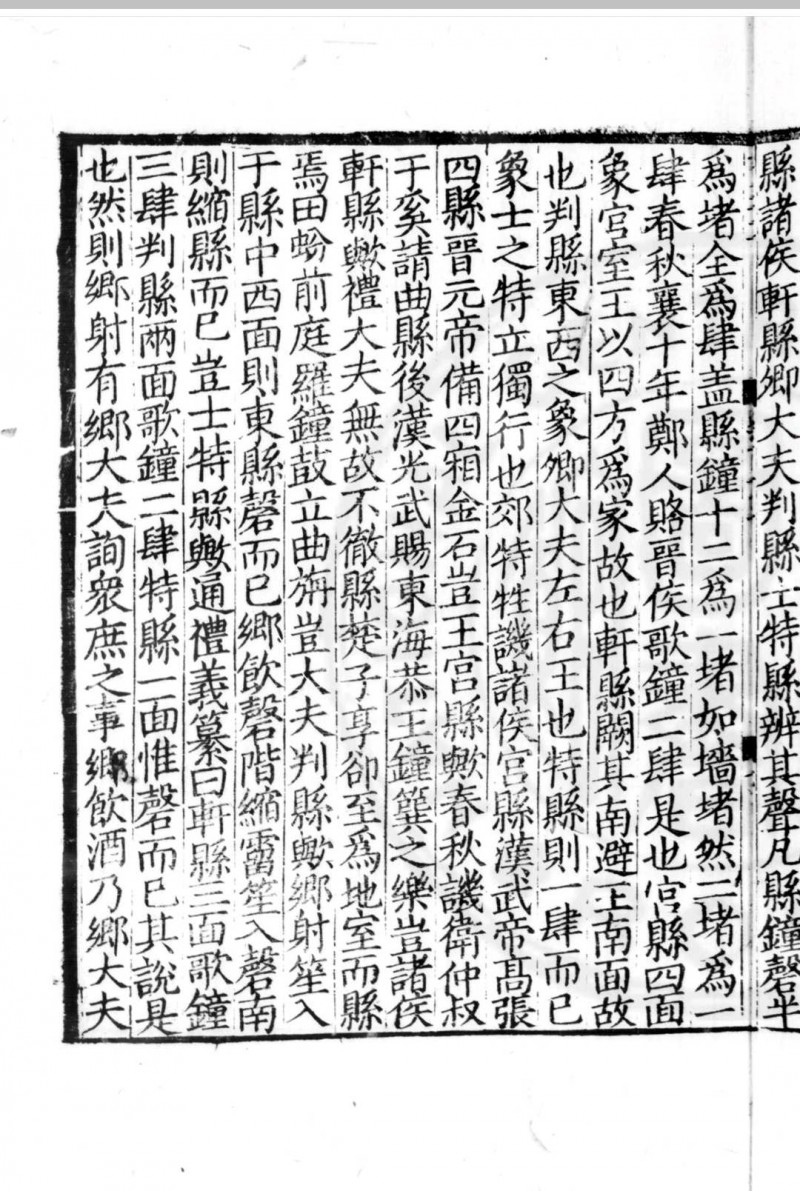 縣諸侯軒縣卿大夫判縣士特縣辨其聲凡縣鐘磬半
爲堵全爲肆盖縣鐘十二爲一堵如墻堵然二堵爲一
肆春秋襄十年鄭人賂晉侯歌鐘二肆是也宫縣四面
象宫室王以四方爲家故也軒縣闕其南避王南面故
也判縣東西之象卿大夫左右王也特縣則一肆而已
象士之特立獨行也郊特牲譏諸侯宫縣漢武帝髙張
四縣晉元帝備四廂金石豈王宫縣歟春秋譏衛仲叔
于奚請曲縣後漢光武賜東海恭王鐘簨之樂豈諸侯
軒縣歟禮大夫無故不徹縣楚子享卻至爲地室而縣
焉田蚡前庭羅鐘鼓立曲旃豈大夫判縣歟鄉射笙入
于縣中西面則東縣磬而已鄉飲磬階縮霤笙入磬南
則縮縣而已豈士特縣歟通禮義纂曰軒縣三面歌鐘
三肆判縣兩面歌鐘二肆特縣一面惟磬而已其說是
也然則鄉射有鄉大夫詢衆庶之事鄉飲酒乃鄉大夫